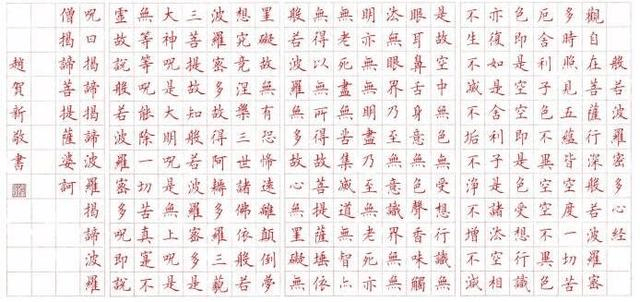 般若波羅蜜多心経
觀自在菩薩行深般若波羅蜜
多時照見五蘊皆空度一切苦
厄舍利子色不異空空不異色
色即是空空即是色受想行識
亦復如是舍利子是諸法空相
不生不滅不垢不淨不增不減
是故空中無色無受想行識無
眼耳鼻舌身意無色聲香味觸
法無眼界乃至無意識界無無
明亦無無明盡乃至無老死亦
無老死盡無苦集滅道無智亦
無得以無所得故菩提薩埵依
般若波羅蜜多故心無罣礙無
罣礙故無有恐怖遠離顛倒夢
想究竟涅槃三世諸佛依般若
波羅蜜多故得阿耨多羅三藐
三菩提故知般若波羅蜜多是
大神呪是大明呪是無上呪是
無等等呪能除一切苦真實不
虛故說般若波羅蜜多呪即說
呪曰揭諦揭諦波羅揭諦波羅
僧揭諦菩提薩婆訶
趙賀新敬書